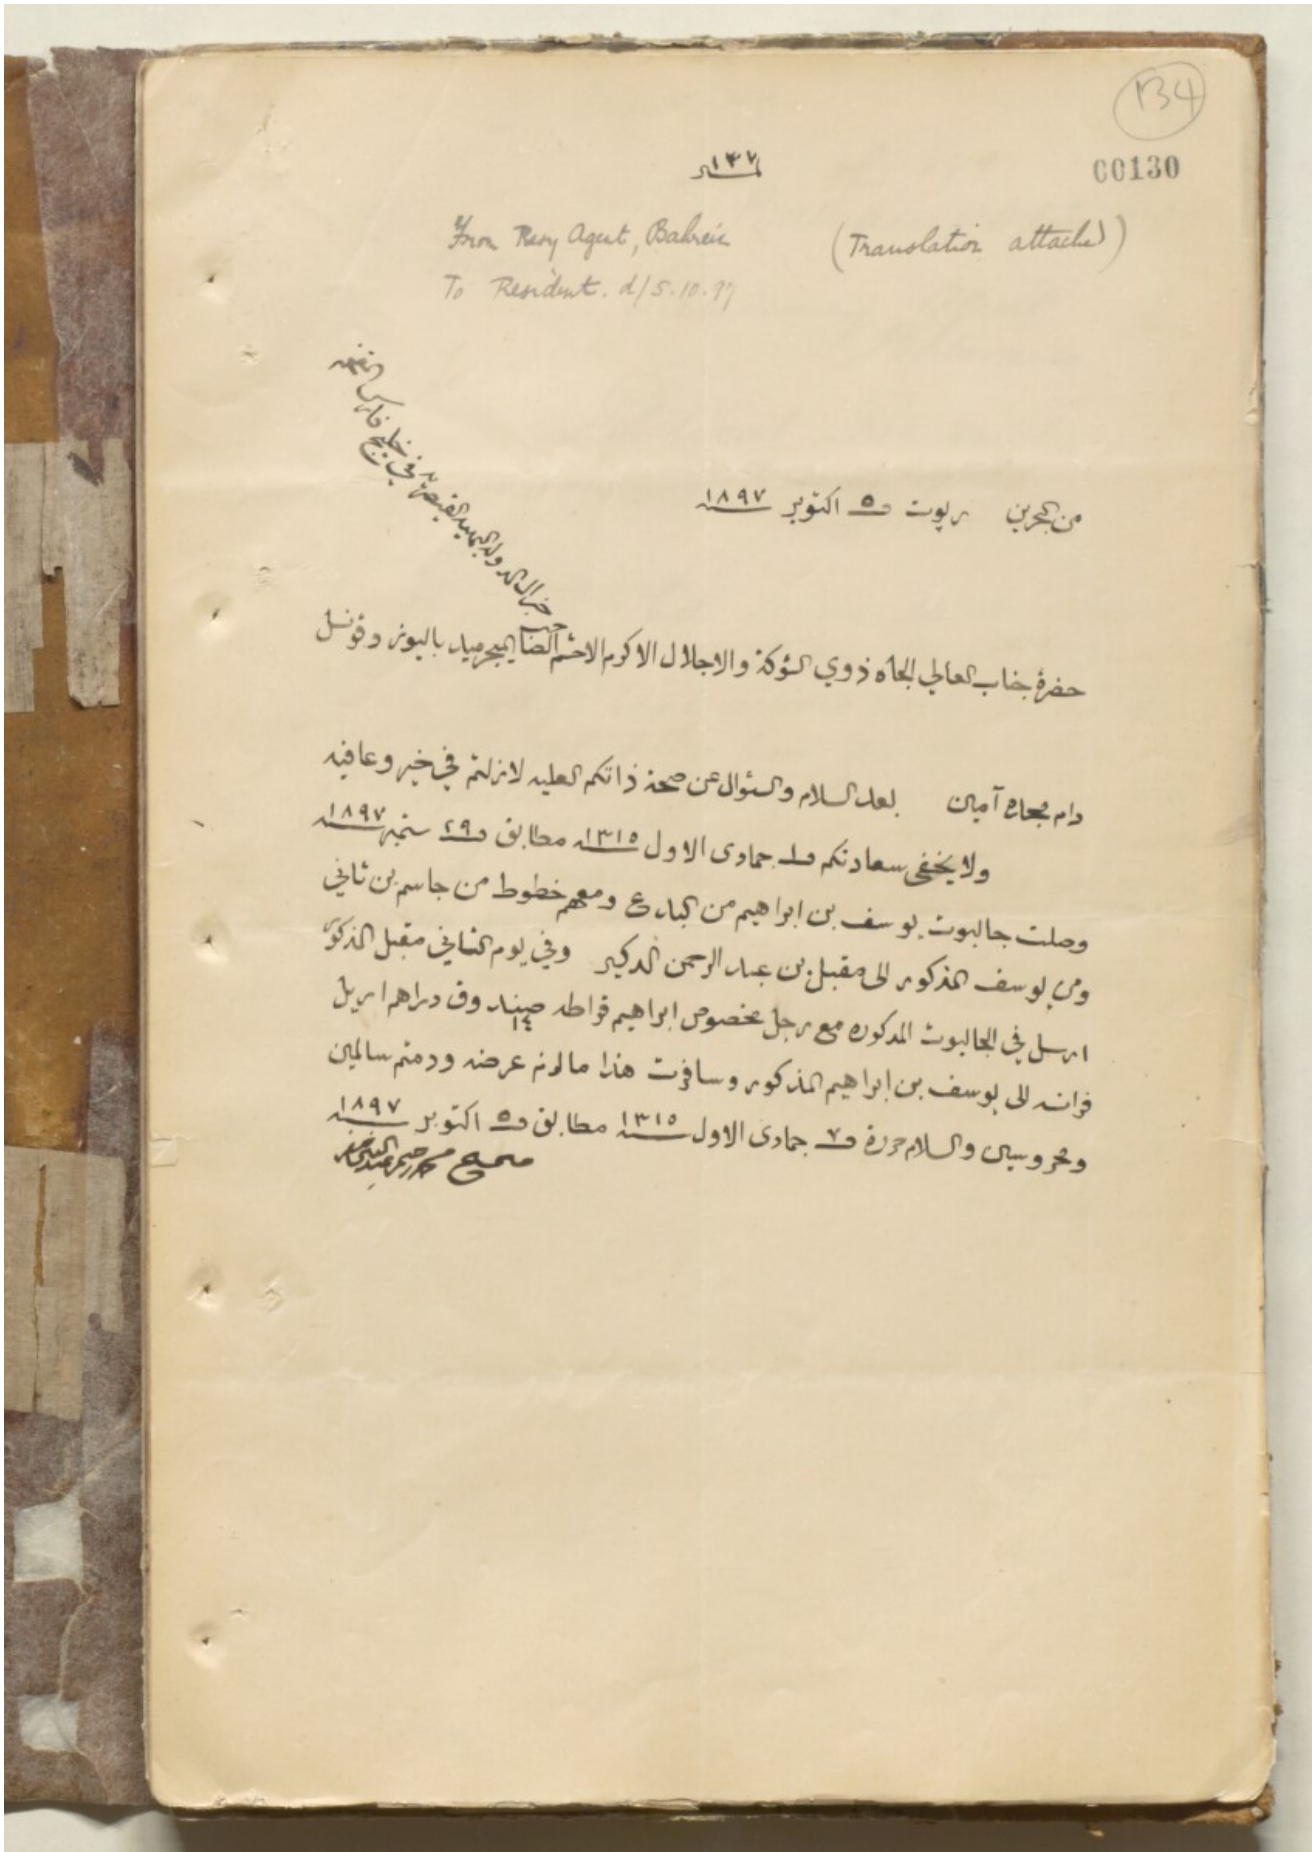 134
00130
نمبر ١٣٧
From Resy Agent, Bahrein (Translation attached)
To Resident. d/ 5.10.97
من البحرين ربوت في ٥ اكتوبر سنه ١٨٩٧
حضرة جناب العالي الجاه ذوي الشوكة والاجلال الاكرم الاحشم الصاحب الميجر ميد باليوز وقونسل
جنرال الدوله البهيه القيصريه في خليج فارس
دام مجاره آمين بعد السلام والسئوال عن صحة ذاتكم العليه لازلتم في خير وعافيه
ولا يخفى سعادتكم في ١ جمادى الاول سنه ١٣١٥ مطابق في ٢٩ ستمبر سنه ١٨٩٧
وصلت جالبوت يوسف بن ابراهيم من البدع ومعهم خطوط من جاسم بن ثاني
ومن يوسف المذكور الى مقبل بن عبد الرحمن الذكير وفي يوم الثاني مقبل المذكور
ارسل في الجالبوت المذكوره مع رجل مخصوص ابراهيم قراطه ١٤ صندوق دراهم اريل
فرانسه الى يوسف بن ابراهيم المذكور وسافرت هذا مالزم عرضه ودمتم سالمين
ومحروسين والسلام حررة في ٧ جمادى الاول سنه ١٣١٥ مطابق في ٥ اكتوبر سنه ١٨٩٧
صحيح محمد رحيم